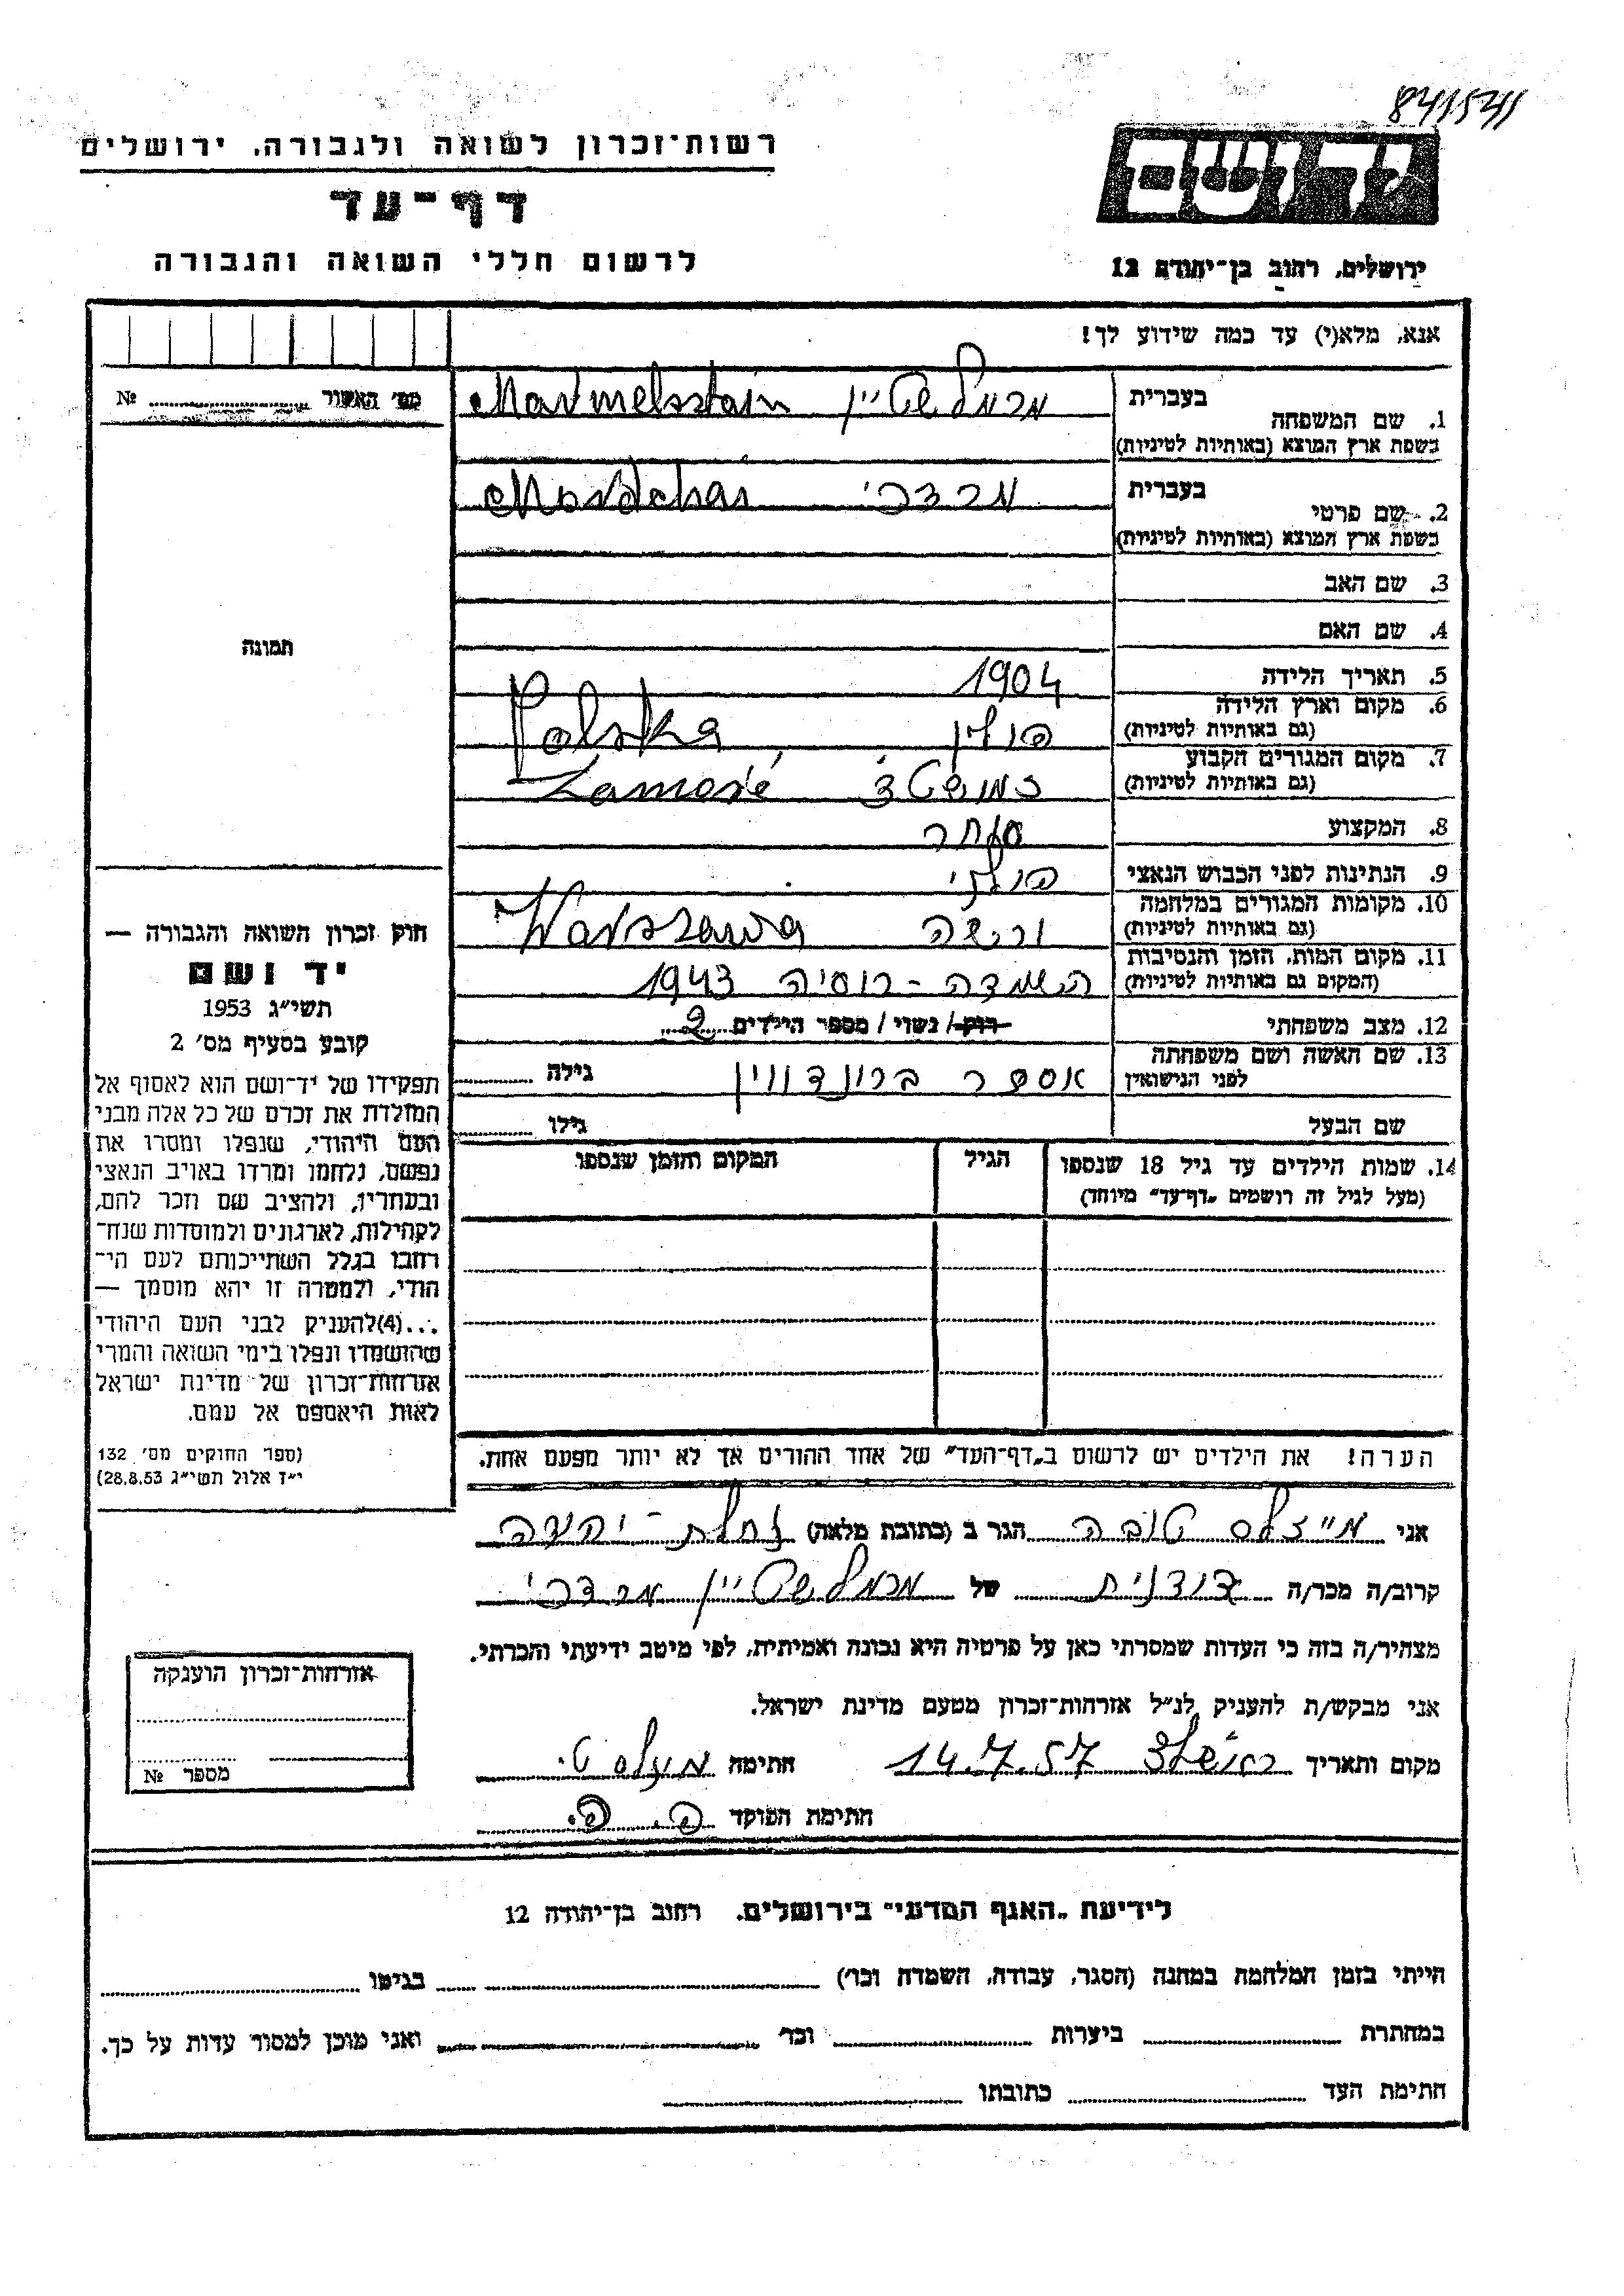 841541
רשות־זכרון לשואה ולגבורה, ירושלים
דף־עד
לרשום חללי השואה והגבורה
יד ושם
ירושלים, רחוב בן־יהודה 12
אנא, מלא(י) עד כמה שידוע לך!
מס׳ האשור ........ №
תמונה
1. שם המשפחה בעברית מרמלשטיין Marmelsstain
בשפת ארץ המוצא (באותיות לטיניות)
2. שם פרטי בעברית מרדכי Mordchai
בשפת ארץ המוצא (באותיות לטיניות)
3. שם האב
4. שם האם
5. תאריך הלידה 1904
6. מקום וארץ הלידה (גם באותיות לטיניות) פולין Polska
7. מקום המגורים הקבוע (גם באותיות לטיניות) זמושטץ׳ Zamość
8. המקצוע סוחר
9. הנתינות לפני הכבוש הנאצי פולני
10. מקומות המגורים במלחמה (גם באותיות לטיניות) ורשה Warszawa
11. מקום המות, הזמן והנסיבות (המקום גם באותיות לטיניות) השמדה - רוסיה 1943
12. מצב משפחתי רוק/ נשוי / מספר הילדים 2
13. שם האשה ושם משפחתה לפני הנישואין אסטר ברונדווין גילה
שם הבעל גילו
14. שמות הילדים עד גיל 18 שנספו (מעל לגיל זה רושמים „דף־עד״ מיוחד) הגיל המקום והזמן שנספו
הערה! את הילדים יש לרשום ב„דף־העד״ של אחד ההורים אך לא יותר מפעם אחת.
חוק זכרון השואה והגבורה —
יד ושם
תשי״ג 1953
קובע בסעיף מס׳ 2
תפקידו של יד־ושם הוא לאסוף אל
המולדת את זכרם של כל אלה מבני
העם היהודי, שנפלו ומסרו את
נפשם, נלחמו ומרדו באויב הנאצי
ובעוזריו, ולהציב שם וזכר להם,
לקהילות, לארגונים ולמוסדות שנח־
רבו בגלל השתייכותם לעם הי־
הודי, ולמטרה זו יהא מוסמך —
...(4)להעניק לבני העם היהודי
שהושמדו ונפלו בימי השואה והמרי
אזרחות־זכרון של מדינת ישראל
לאות היאספם אל עמם.
(ספר החוקים מס׳ 132
י״ז אלול תשי״ג 28.8.53)
אני מייזלס טובה הגר ב (כתובת מלאה) נחלת-יהודה
קרוב/ה מכר/ה דודנית של מרמלשטיין מרדכי
מצהיר/ה בזה כי העדות שמסרתי כאן על פרטיה היא נכונה ואמיתית, לפי מיטב ידיעתי והכרתי.
אני מבקש/ת להעניק לנ״ל אזרחות־זכרון מטעם מדינת ישראל.
מקום ותאריך ראשל״צ 14.7.57 חתימה מיזלס ט.
חתימת הפוקד פ. פ.
אזרחות־זכרון הוענקה
מספר №
לידיעת „האגף המדעי״ בירושלים, רחוב בן־יהודה 12
הייתי בזמן המלחמה במחנה (הסגר, עבודה, השמדה וכר׳) ........ בגיטו ........
במחתרת ........ ביערות ........ וכר׳ ........ ואני מוכן למסור עדות על כך.
חתימת העד ........ כתובתו ........